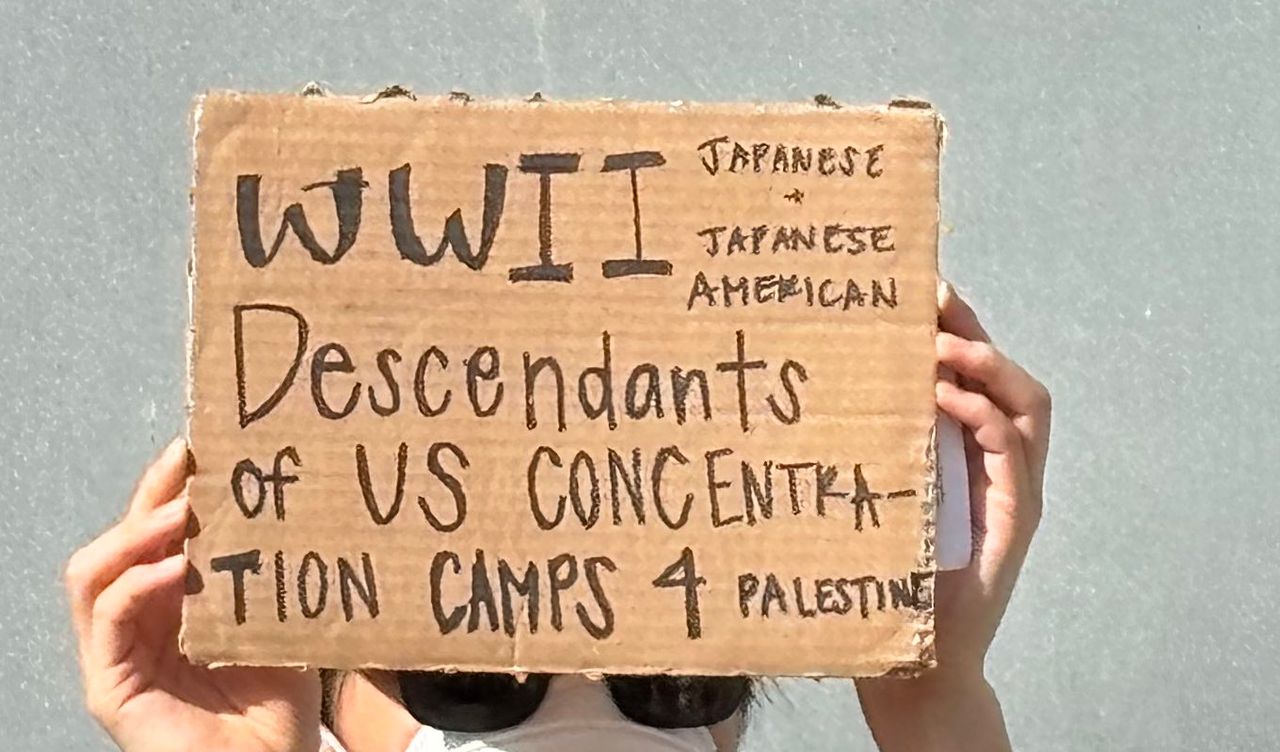 WWII
JAPANESE
+
JAPANESE
AMERICAN
Descendants
of US CONCENTRA-
TION CAMPS 4 PALESTINE